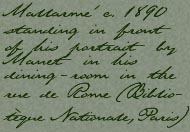 Mallarmé c. 1890
standing in front
of his portrait by
Manet in his
dining-room in the
rue de Rome (Biblio-
tèque Nationale, Paris)